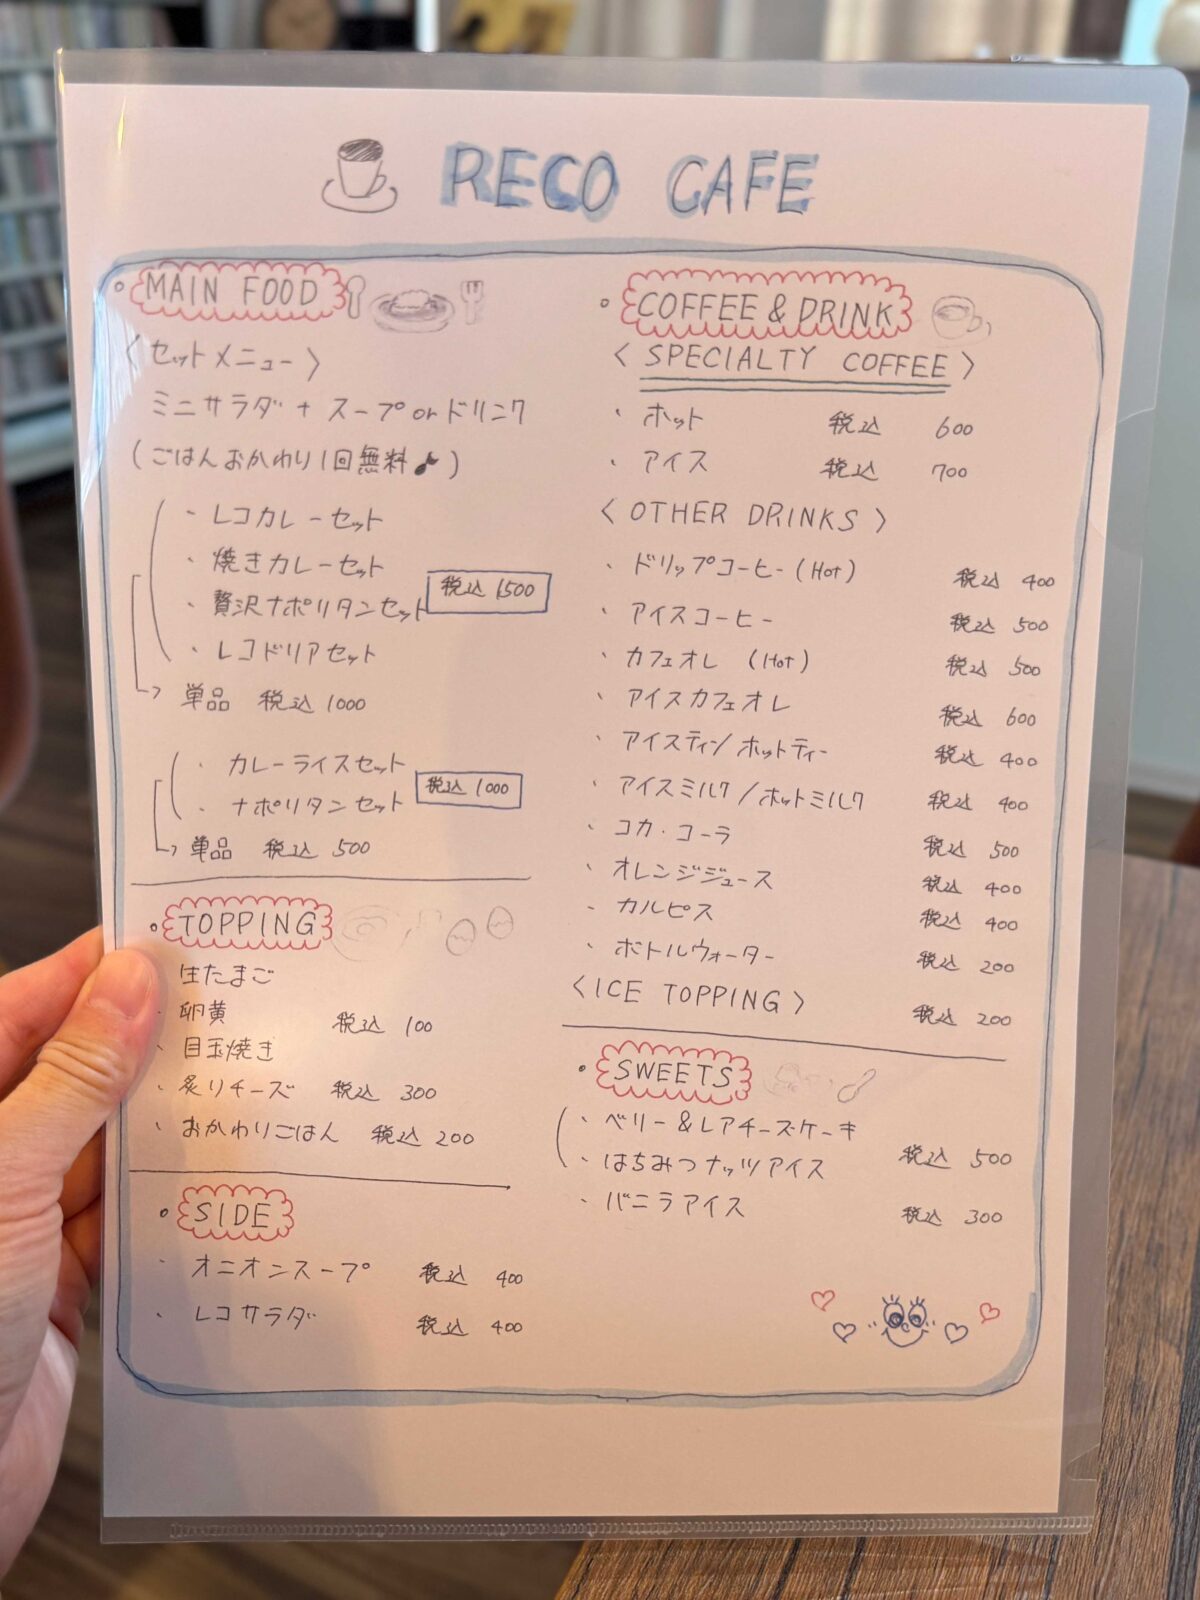 RECO CAFE
MAIN FOOD
〈セットメニュー〉
ミニサラダ + スープ or ドリンク
(ごはんおかわり1回無料♪)
・レコカレーセット
・焼きカレーセット
・贅沢ナポリタンセット
税込 1500
・レコドリアセット
単品 税込 1000
・カレーライスセット
・ナポリタンセット
税込 1000
単品 税込 500
TOPPING
・生たまご
・卵黄
・目玉焼き
税込 100
・炙りチーズ 税込 300
・おかわりごはん 税込 200
SIDE
・オニオンスープ 税込 400
・レコサラダ 税込 400
COFFEE & DRINK
〈SPECIALTY COFFEE〉
・ホット 税込 600
・アイス 税込 700
〈OTHER DRINKS〉
・ドリップコーヒー(Hot) 税込 400
・アイスコーヒー 税込 500
・カフェオレ (Hot) 税込 500
・アイスカフェオレ 税込 600
・アイスティ/ホットティー 税込 400
・アイスミルク/ホットミルク 税込 400
・コカ・コーラ 税込 500
・オレンジジュース 税込 400
・カルピス 税込 400
・ボトルウォーター 税込 200
〈ICE TOPPING〉 税込 200
SWEETS
・ベリー&レアチーズケーキ
・はちみつナッツアイス
税込 500
・バニラアイス 税込 300